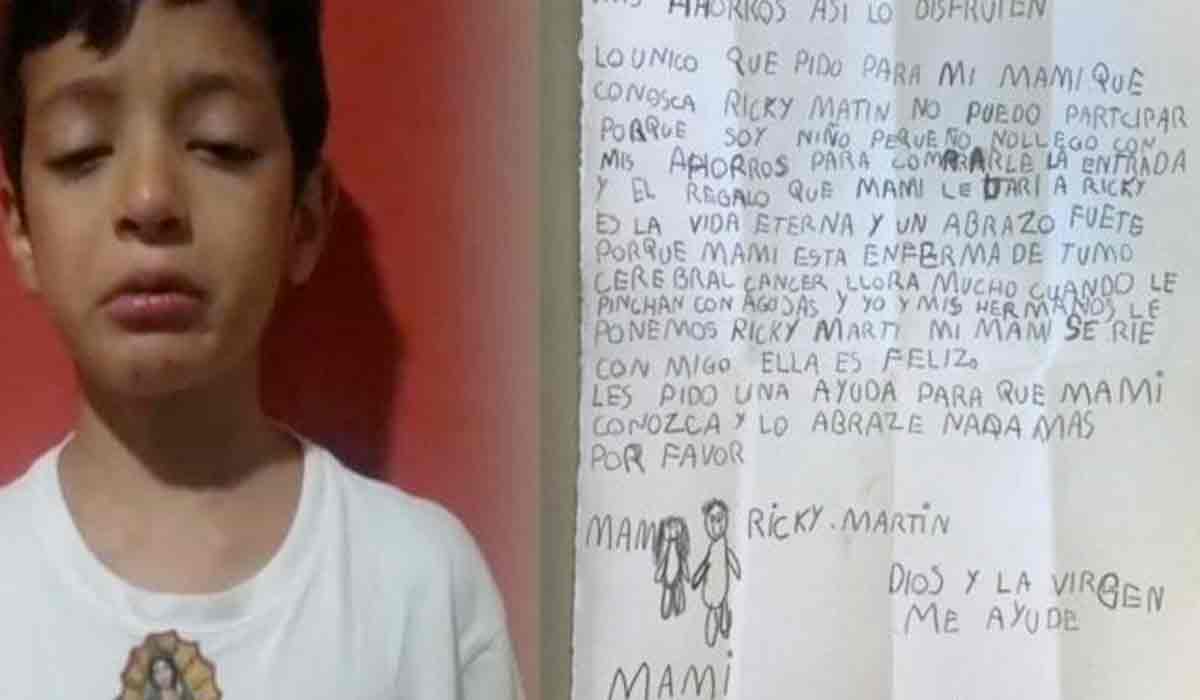 AHORROS ASI LO DISFRUTEN
LO UNICO QUE PIDO PARA MI MAMI QUE
CONOSCA RICKY MATIN NO PUEDO PARTCIPAR
PORQUE SOY NIÑO PEQUEÑO NOLLEGO CON
MIS AHORROS PARA COMRARLE LA ENTRADA
Y EL REGALO QUE MAMI LE DARI A RICKY
ES LA VIDA ETERNA Y UN ABRAZO FUETE
PORQUE MAMI ESTA ENFERMA DE TUMO
CEREBRAL CANCER LLORA MUCHO CUANDO LE
PINCHAN CON AGOJAS Y YO Y MIS HERMANOS LE
PONEMOS RICKY MARTI MI MAMI SE RIE
CON MIGO ELLA ES FELIZ.
LES PIDO UNA AYUDA PARA QUE MAMI
CONOZCA Y LO ABRAZE NADA MAS
POR FAVOR
MAMI RICKY.MARTIN
DIOS Y LA VIRGEN
ME AYUDE
MAMI